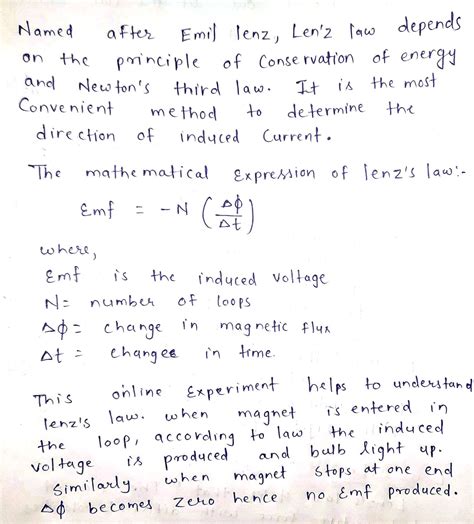 Named after Emil lenz, Len'z law depends
on the principle of Conservation of energy
and Newton's third law. It is the most
Convenient method to determine the
direction of induced Current.
The mathematical Expression of lenz's law:-
Emf = -N (Δϕ/Δt)
where,
Emf is the induced voltage
N= number of loops
Δϕ= change in magnetic flux
Δt = changes in time.
This online Experiment helps to understand
lenz's law. when magnet is entered in
the loop, according to law the induced
voltage is produced and bulb light up.
Similarly. when magnet stops at one end
Δϕ becomes zero hence no Emf produced.